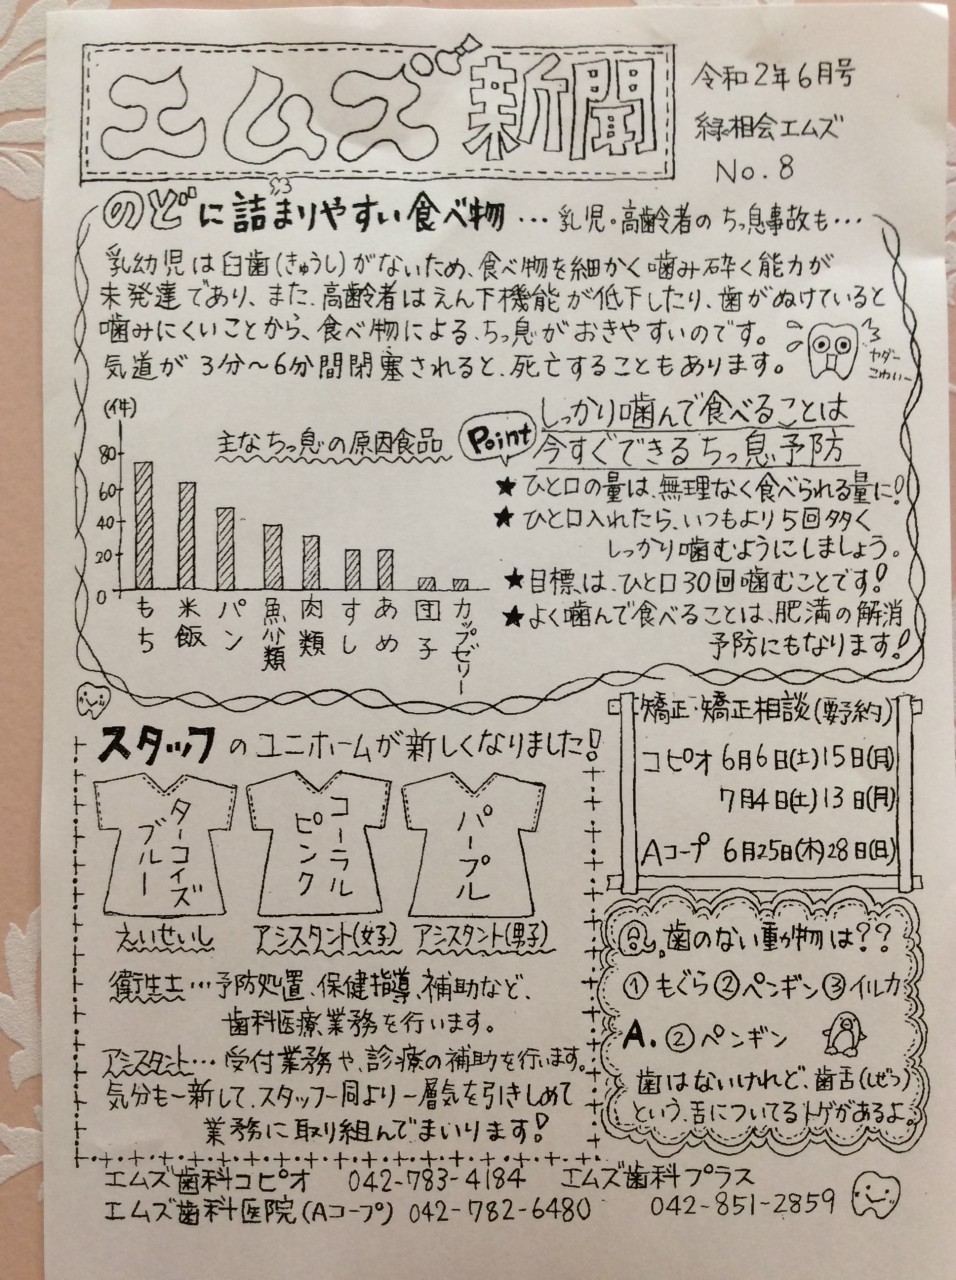 エムズ新聞
令和2年6月号
緑相会エムズ
No.8
のどに詰まりやすい食べ物…乳児・高齢者のちっ息事故も…
乳幼児は臼歯(きゅうし)がないため、食べ物を細かく噛み砕く能力が
未発達であり、また、高齢者はえん下機能が低下したり、歯がぬけていると
噛みにくいことから、食べ物による、ちっ息がおきやすいのです。
気道が3分〜6分間閉塞されると、死亡することもあります。
ヤダー
こわいー
(件)
主なちっ息の原因食品
80
60
40
20
0
もち
米飯
パン
魚介類
肉類
すし
あめ
団子
カップゼリー
Point
しっかり噛んで食べることは
今すぐできるちっ息予防
★ひと口の量は、無理なく食べられる量に!
★ひと口入れたら、いつもより5回多く
しっかり噛むようにしましょう。
★目標は、ひと口30回噛むことです!
★よく噛んで食べることは、肥満の解消
予防にもなります!
スタッフのユニホームが新しくなりました!
ターコイズ
ブルー
コーラル
ピンク
パープル
えいせいし
アシスタント(女子)
アシスタント(男子)
衛生士…予防処置、保健指導、補助など、
歯科医療業務を行います。
アシスタント…受付業務や、診療の補助を行います。
気分も一新して、スタッフ一同より一層気を引きしめて
業務に取り組んでまいります!
矯正・矯正相談(要予約)
コピオ 6月6日(土)15日(月)
7月4日(土)13日(月)
Aコープ 6月25日(木)28日(日)
Q.歯のない動物は??
①もぐら②ペンギン③イルカ
A.②ペンギン
歯はないけれど、歯舌(しぜつ)
という、舌についてるトゲがあるよ。
エムズ歯科コピオ 042-783-4184
エムズ歯科プラス
エムズ歯科医院(Aコープ) 042-782-6480
042-851-2859